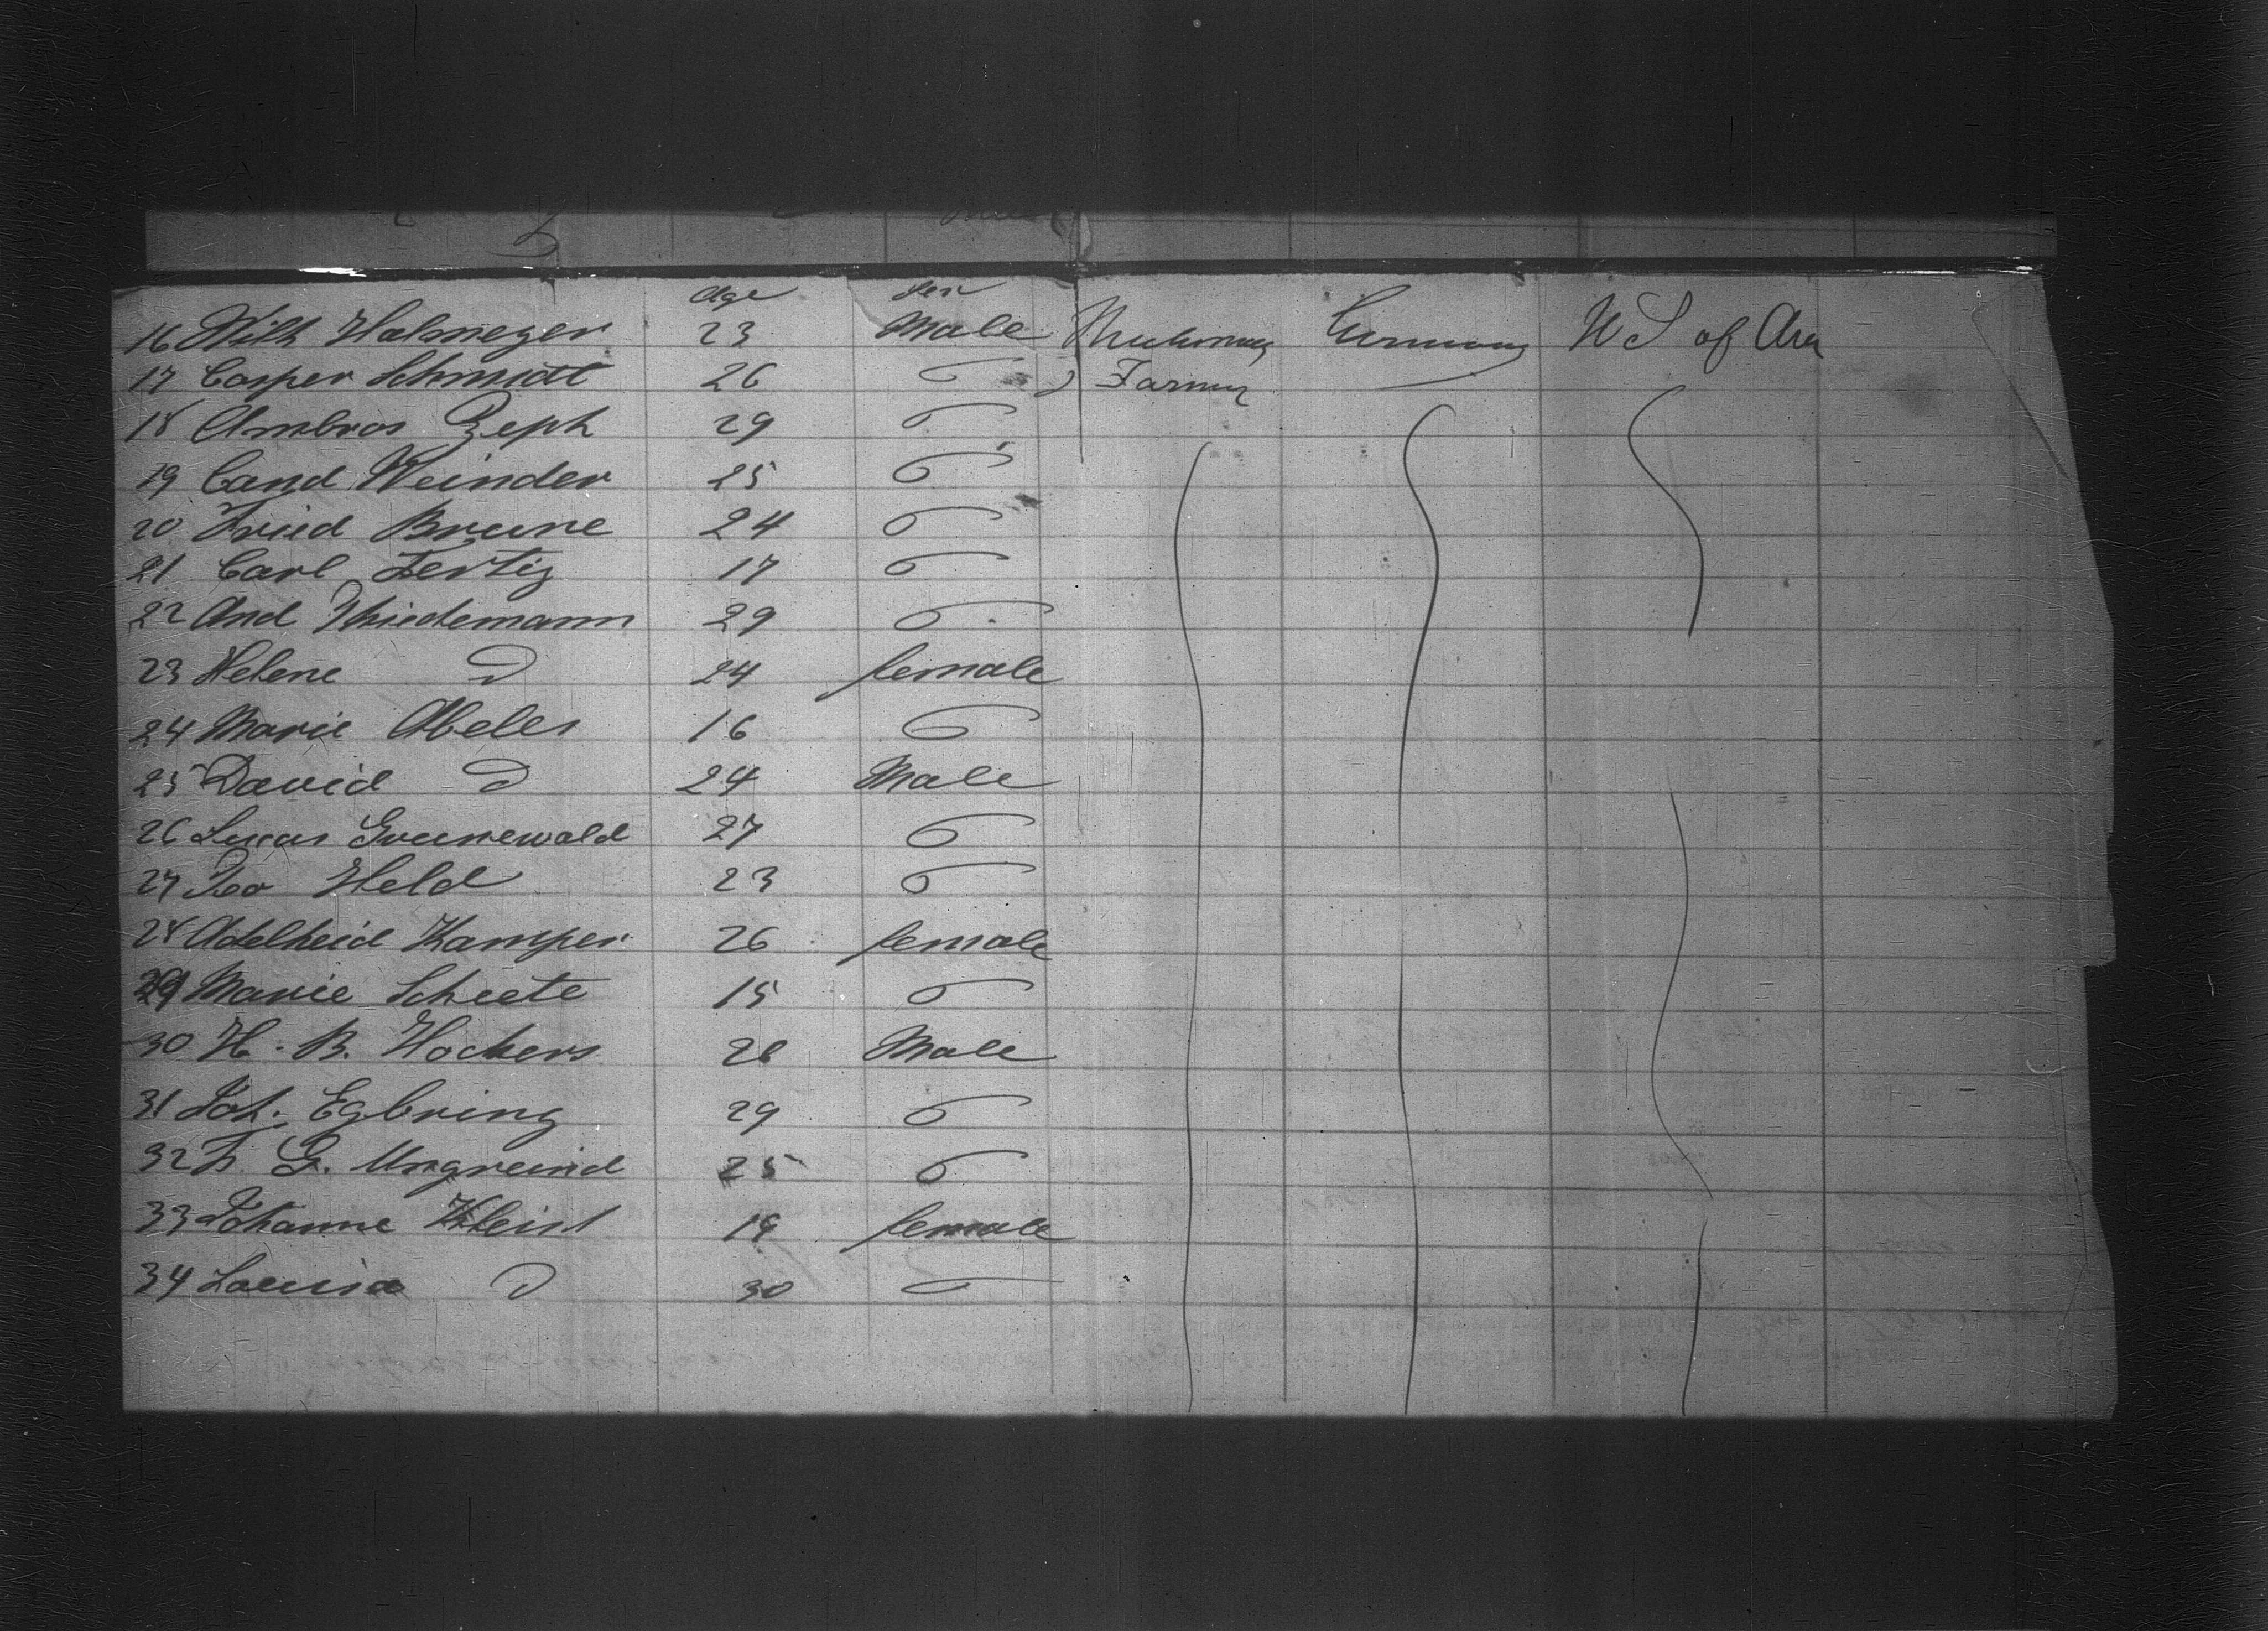 Age Sex
16 Wilh Halmeyer 23 Male Germany U S of Am
17 Casper Schmidt 26 Farmer
18 Ambros Zeph 29
19 Cand Weinder 25
20 Fried Brune 24
21 Carl Fertig 17
22 And Thiedemann 29
23 Helene D 24 female
24 Marie Abeles 16
25 David D 24 Male
26 Lucas Grunewald 27
27 Held 23
28 Adelheid Kamper 26 female
29 Marie Scheete 15
30 H. B. Hockers 28 Male
31 Joh. Egbring 29
32 F. G. Ungreind 25
33 Johanne Kleist 19 female
34 Louisa D 30